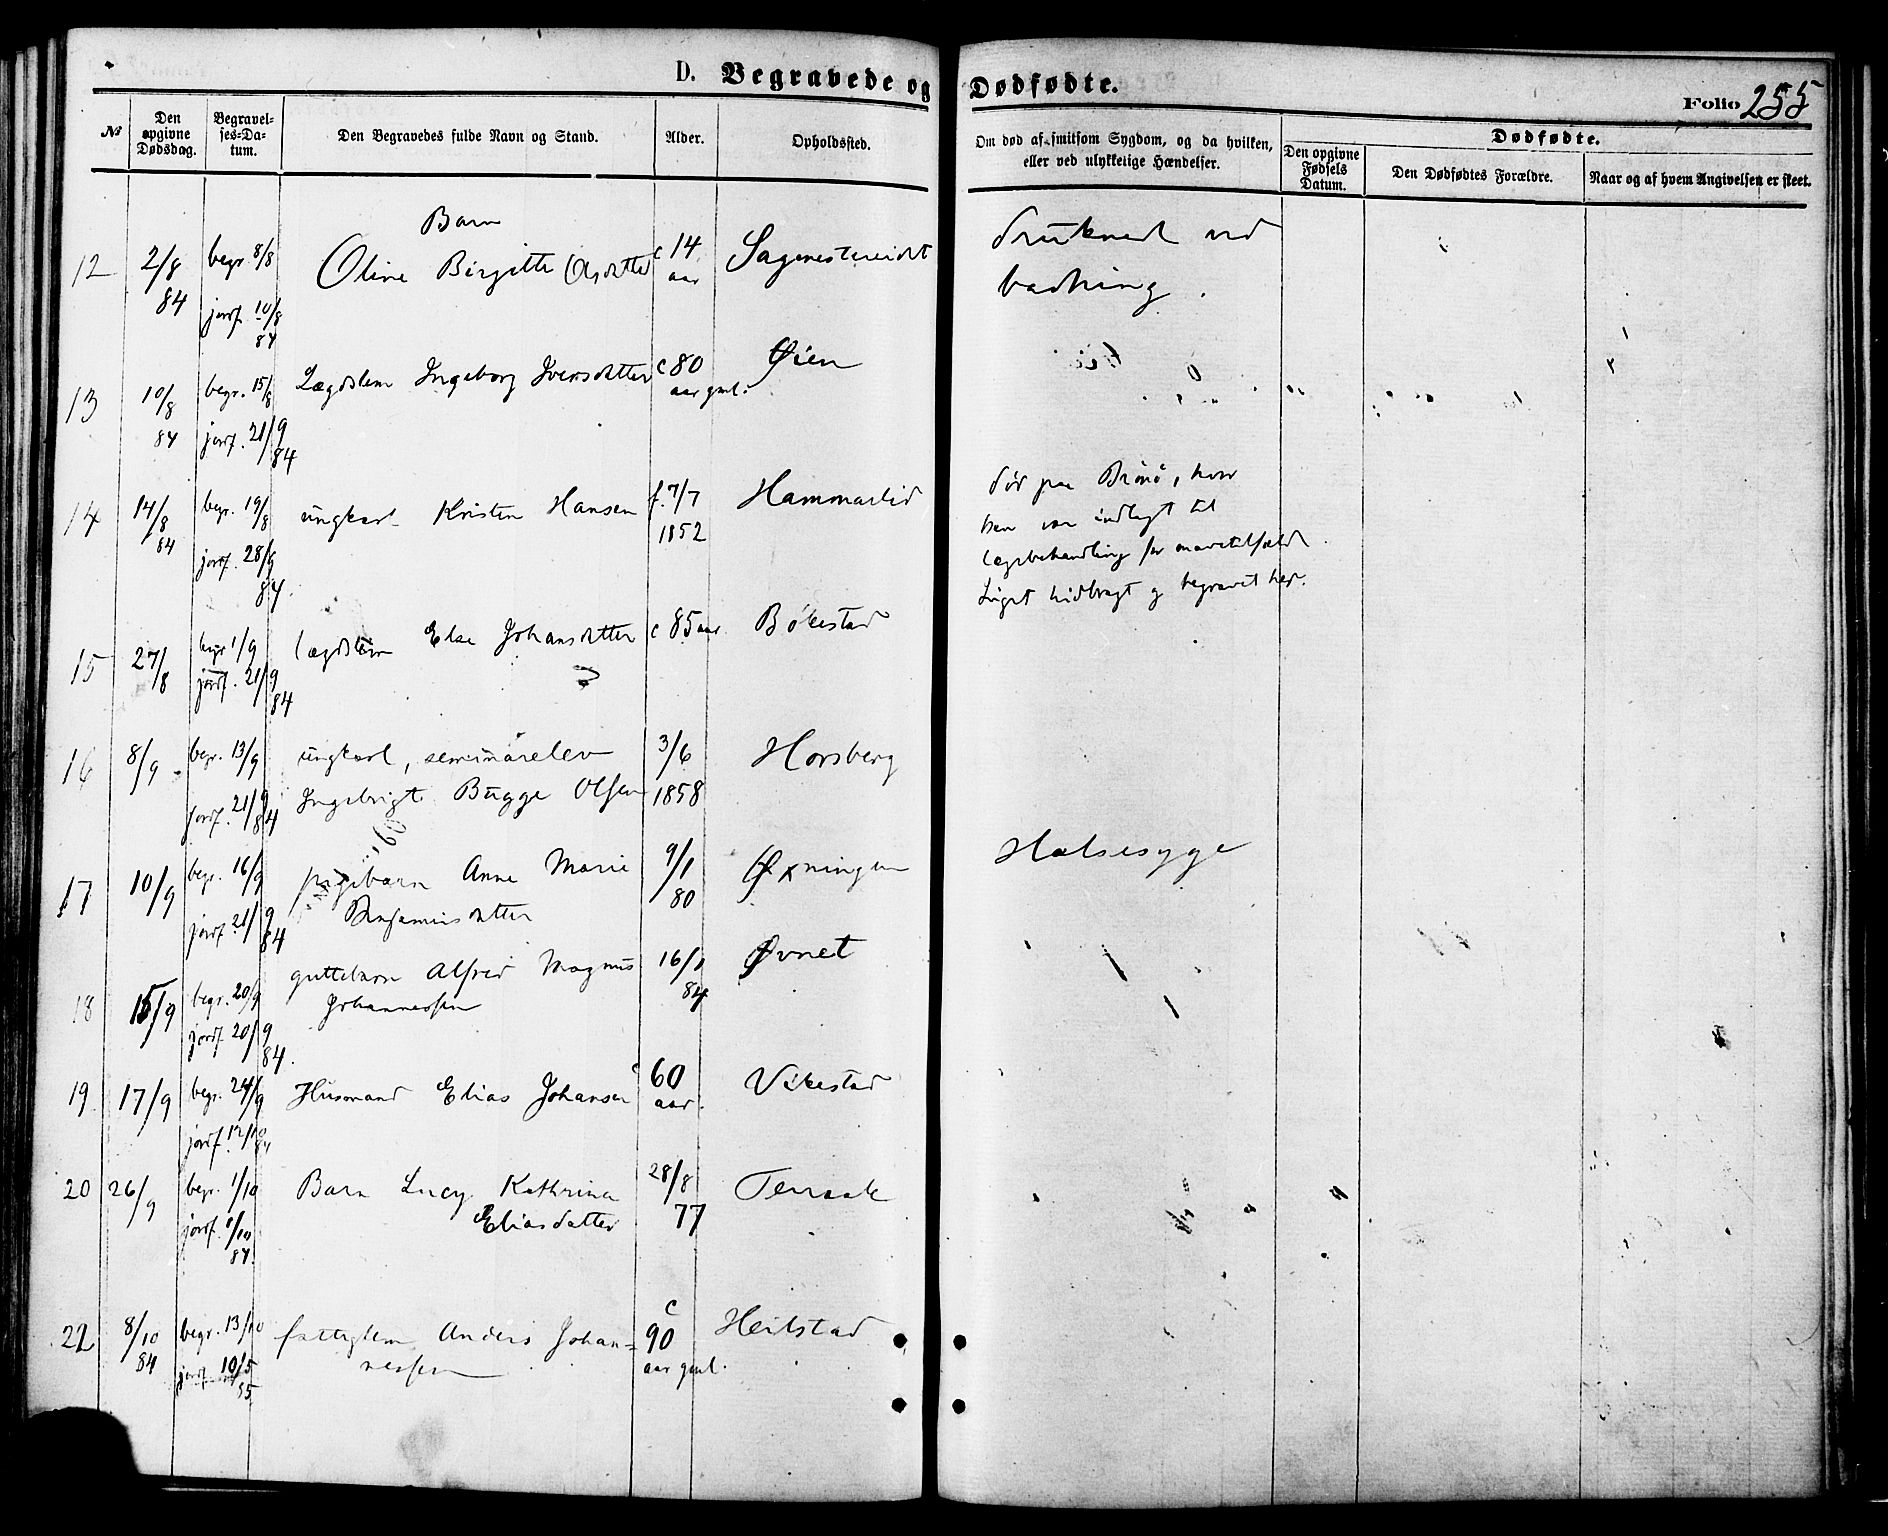 D. Begravede og Dødfødte.
Folio 255
№
Den opgivne Dødsdag.
Begravel-
ses-Da-
tum.
Den Begravedes fulde Navn og Stand.
Alder.
Opholdssted.
Om død af smitsom Sygdom, og da hvilken,
eller ved ulykkelige Hændelser.
Dødfødte.
Den opgivne
Fødsels
Datum.
Den Dødfødtes Forældre.
Naar og af hvem Angivelsen er skeet.
Barn
12 2/8 84 begr 8/8 Oline Birgitte Olsdatter c 14 aar
druknet ved
jordf. 10/8 84
badning.
13 10/8 84 begr. 15/8 Lægdslem Ingeborg Iversdatter c 80 aar gml. Øien
jordf. 21/9 84
14 14/8 84 begr. 19/8 ungkarl Kristen Hansen f. 7/7 1852 Hammarlid
jordf. 28/9 84.
død paa Brønø, hvor
han var indlagt til
lægebehandling for mavetilfælde.
Liget hidbragt og begravet her.
15 27/8 begr 1/9 lægdslem Else Johansdatter c 85 aar Bökestad
jordf. 21/9 84
16 8/9 begr. 13/9 ungkarl, seminarelev 3/6 1858 Horsberg
jordf. 21/9 84 Ingebrigt Bugge Olsen
17 10/9 begr. 16/9 pigebarn Anne Marie 9/1 80 Øxningen Halsesyge
jordf. 21/9 84 Benjaminsdatter
18 15/9 begr. 20/9 guttebarn Alfred Magnus 16/1 84 Øvnet
jordf. 20/9 84. Johannessen
19 17/9 begr. 24/9 Husmand Elias Johansen c 60 aar. Vikestad
jordf. 12/10 84
20 26/9 begr. 1/10 Barn Lucy Kathrine 28/8 77 Terraak
jordf. 1/10 84. Eliasdatter
22 8/10 84 begr. 13/10 fattiglem Anders Johan= c 90 aar gml. Heilstad
jordf 10/5 85 nessen